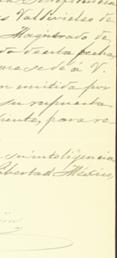 Valdivieso de
Magistrado de
de esta fecha
que se dé á V.
n emitida por
su respuesta
diente, para re
su inteligencia
Libertad. México,